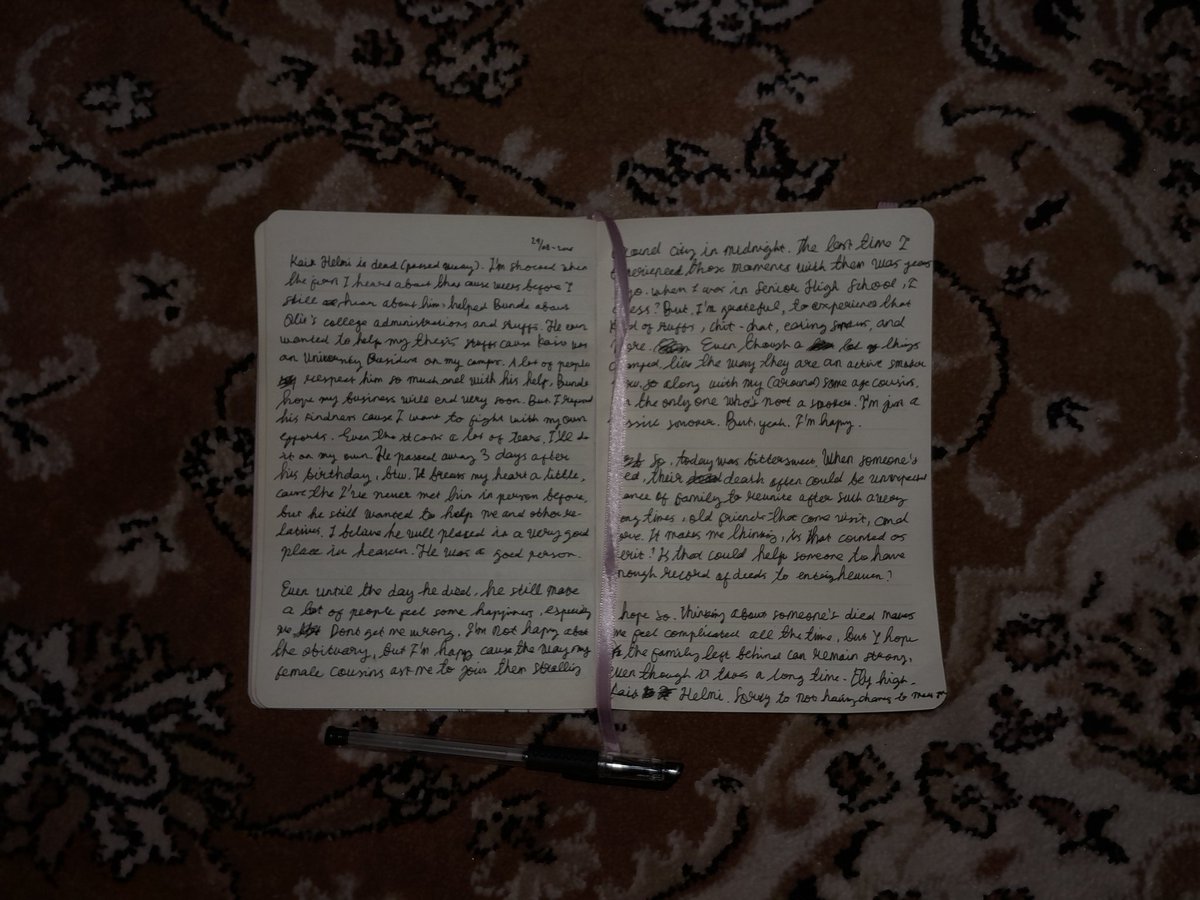 Kaik Helmi is dead (passed away). I'm shocked when
the first I heard about that cause weeks before I
still hear about him, helped Bunda about
Qilie's college administrations and stuffs. He even
wanted to help my thesis stuffs cause Kaik was
an University on my campus. A lot of people
respect him so much and with his help, Bunda
hope my business will end very soon. But I
his kindness cause I want to fight with my own
efforts. Even tho it cost a lot of tears, I'll do
it on my own. He passed away 3 days after
his birthday, btw. It breaks my heart a little,
cause tho I've never met him in person before,
but he still wanted to help me and other re-
latives. I belave he will placed in a very good
place in heaven. He was a good person.
Even until the day he died, he still make
a lot of people feel some happiness, especially
me. Dont get me wrong. I'm not happy about
the obituary, but I'm happy cause the way my
female cousins ask me to join them strolling
around city in midnight. The last time I
experienced those moments with them was years
ago. when I was in Senior High School, I
guess? But, I'm grateful, to experience that
kind of stuffs, chit-chat, eating and
more. Even though a lot of things
changed, like the way they are an active smoker
now, so along with my (around) same age cousins.
I'm the only one who's not a smoker. I'm just a
passive smoker. But, yeah. I'm happy.
So, today was bittersweet. When someone's
died, their death often could be unexpected
chance of family to reunite after such a very
long times, old friends that come visit, and
love. It makes me thinking, is that counted as
merit? Is that could help someone to have
enough record of deeds to entering heaven?
I hope so. Thinking about someone's died makes
me feel complicated all the time, but I hope
the family left behind can remain strong,
even though it takes a long time. Fly high.
Kaik Helmi. Sorry to not having chance to meet